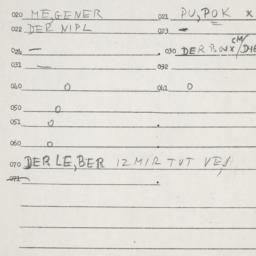 020 ME,GENER 021 PU,POK x
022 DER NIPL 023 -
024 — 030 DER
031 — 032
040 0 041 0
050 0
051 0
060 0
070 DER LE,BER 12 MIR TUT
071